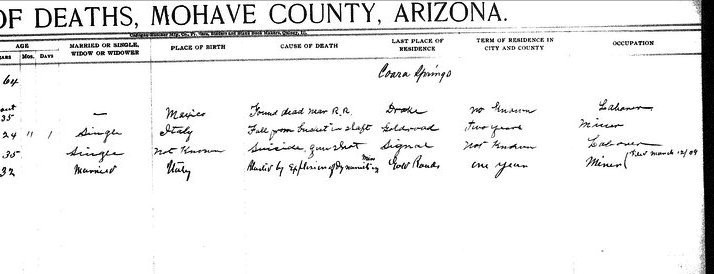 OF DEATHS, MOHAVE COUNTY, ARIZONA.
AGE MARRIED OR SINGLE, WIDOW OR WIDOWER PLACE OF BIRTH CAUSE OF DEATH LAST PLACE OF RESIDENCE TERM OF RESIDENCE IN CITY AND COUNTY OCCUPATION
EARS MOS. DAYS
64 Springs
35 — Mexico Found dead near R.R. Drake no Known Laborer
24 11 1 Single Italy Fall from bucket in shaft Goldroad two years Miner
35 Single Not Known Suicide gun shot Signal Not Known Laborer
32 Married Italy by Explosion of Dynamite in Mine Gold Roads one year Miner (Filed March 12/09